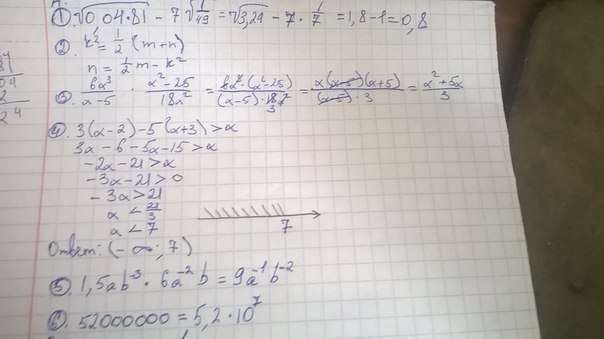 1) √0,04·81 - 7√1/49 = √3,24 - 7·1/7 = 1,8-1=0,8
2. k² = 1/2 (m+n)
n = 1/2 m - k²
3. 6a³/a-5 · a²-25/18a² = 6a³·(a²-25)/(a-5)·18a² = a(a-5)(a+5)/(a-5)·3 = a²+5a/3
4. 3(a-2)-5(a+3)>a
3a-6-5a-15>a
-2a-21>a
-3a-21>0
-3a>21
a<21/3
a<7
7
Ответ: (-∞; 7)
5. 1,5ab⁻³ · 6a⁻²b = 9a⁻¹b⁻²
6. 52000000 = 5,2·10⁷